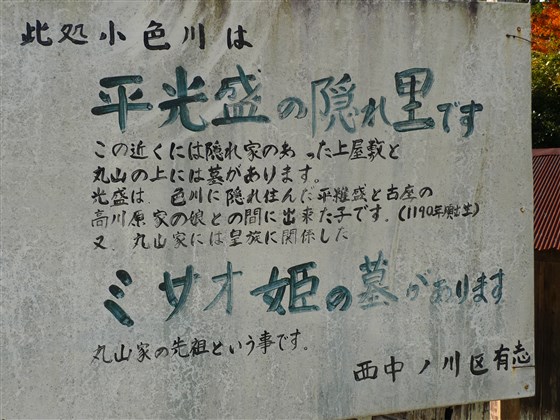 此処小色川は
平光盛の隠れ里です
この近くには隠れ家のあった上屋敷と
丸山の上には墓があります。
光盛は、色川に隠れ住んだ平維盛と古座の
高川原家の娘との間に出来た子です。(1190年頃出生)
又、丸山家には皇族に関係した
ミサオ姫の墓があります
丸山家の先祖という事です。
西中ノ川区有志